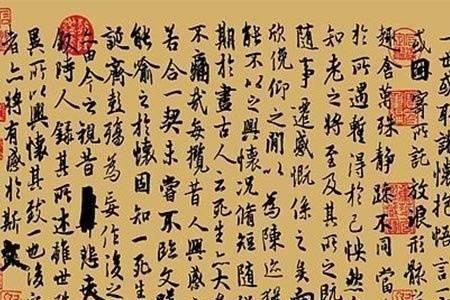 一世或取諸懷抱悟
或因寄所託放浪形骸
趣舍萬殊靜躁不同當
於所遇暫得於己怏然
知老之將至及其所之既
隨事遷感慨係之矣向
欣俛仰之閒以為陳跡
能不以之興懷況脩短隨
期於盡古人云死生亦大
不痛哉每攬昔人興感
若合一契未嘗不臨文
能喻之於懷固知一死生
誕齊彭殤為妄作後之
亦由今之視昔悲夫
敘時人錄其所述雖世
異所以興懷其致一也後
者亦將有感於斯文